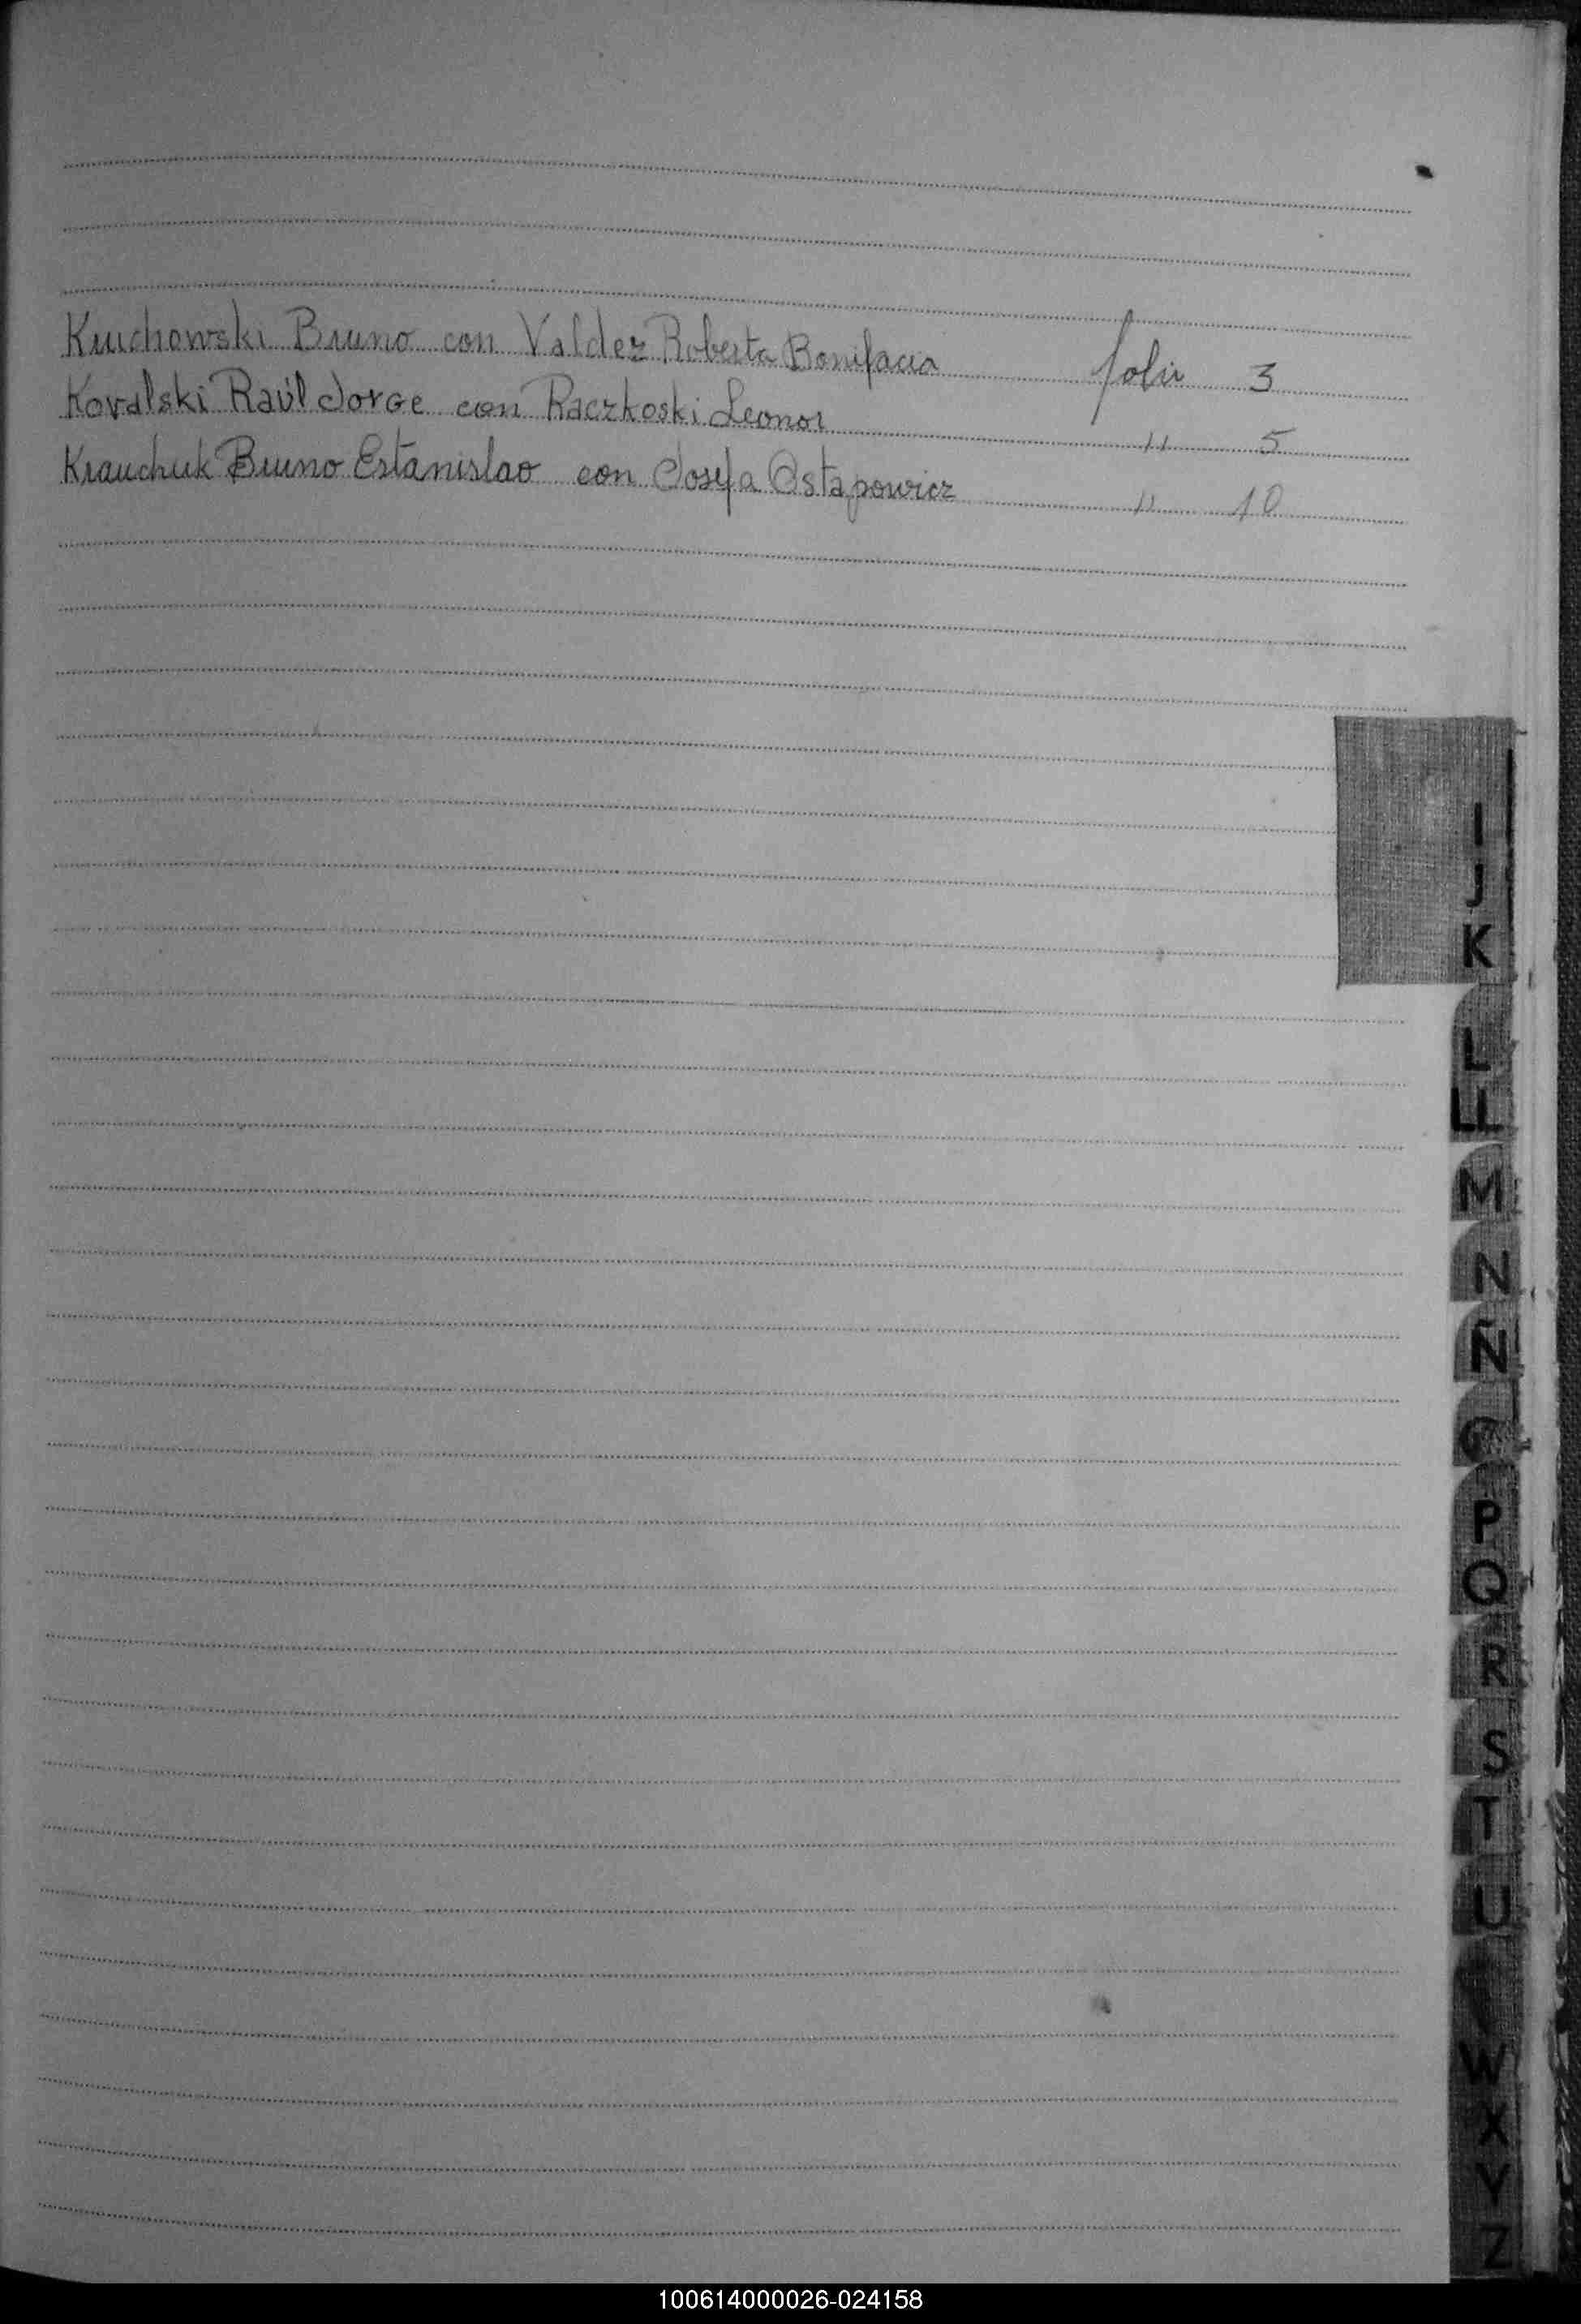 Kruchowski Bruno con Valdez Roberta Bonifacia folio 3
Kovalski Raúl Jorge con Raczkoski Leonor " 5
Krauchuk Bruno Estanislao con Josefa Ostapowicz " 10
I
J
K
L
LL
M
N
Ñ
P
Q
R
S
T
U
W
X
Y
Z
100614000026-024158